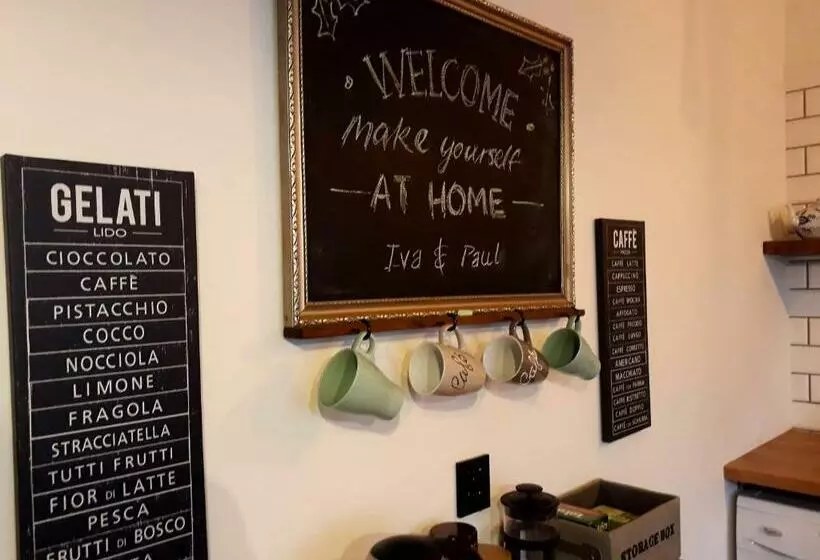 GELATI
LIDO
CIOCCOLATO
CAFFÈ
PISTACCHIO
COCCO
NOCCIOLA
LIMONE
FRAGOLA
STRACCIATELLA
TUTTI FRUTTI
FIOR DI LATTE
PESCA
FRUTTI DI BOSCO
WELCOME
make yourself
AT HOME
Iva & Paul
CAFFÈ
CAFFÈ LATTE
CAPPUCCINO
ESPRESSO
CAFFÈ MOCHA
AFFOGATO
CAFFÈ FREDDO
CAFFÈ LUNGO
CAFFÈ CORRETTO
AMERICANO
MACCHIATO
CAFFÈ CON PANNA
CAFFÈ RISTRETTO
CAFFÈ DOPPIO
CAFFÈ CON SCHIUMA
Café
Café
STORAGE BOX